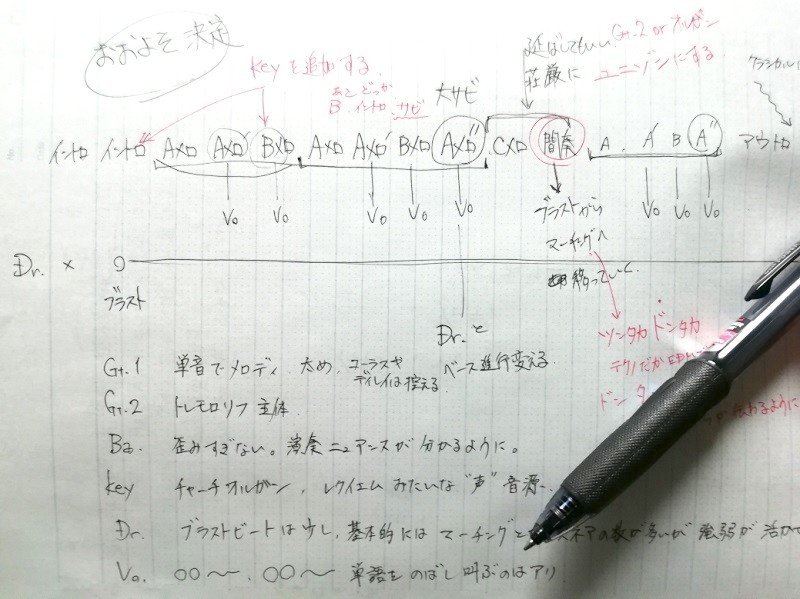 おおよそ決定
keyを追加する。
あと どっか
B イントロ サビ
大サビ
延ばしてもいい Gt.2 or オルガン
荘厳に ユニゾンにする。
クラシカル
イントロ イントロ Aメロ Aメロ' Bメロ Aメロ Aメロ' Bメロ Aメロ'' Cメロ 間奏 A A' B A'' アウトロ
Vo Vo Vo Vo Vo Vo Vo Vo
ブラストから
マーチングへ
移っていく。
Dr. ×
ブラスト
Dr.と
ベース進行変える
ツンタカドンタカ
テクノだか
ドンタ
伝わるように
Gt.1 単音でメロディ 太め、コーラスや
ディレイは控える
Gt.2 トレモロリフ主体
Ba. 歪みすぎない。演奏ニュアンスが分かるように。
key チャーチオルガン、レクイエムみたいな"声"音源。
Dr. ブラストビートは少し、基本的にはマーチング スネアの数が多いが 強弱が活か
Vo. ○○〜、○○〜 単語をのばし叫ぶのはアリ